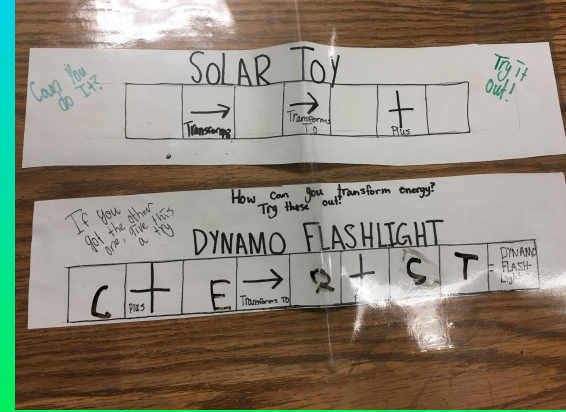 Could You
do It?
SOLAR TOY
Try it
Out!
→
Transforms
→
Transforms
TO
+
Plus
How can you transform energy?
Try these out!
If you
got the other
one, give this
a try
DYNAMO FLASHLIGHT
C + E → + S T
Plus
Transforms TO
DYNAMO
FLASH-
LIGHT